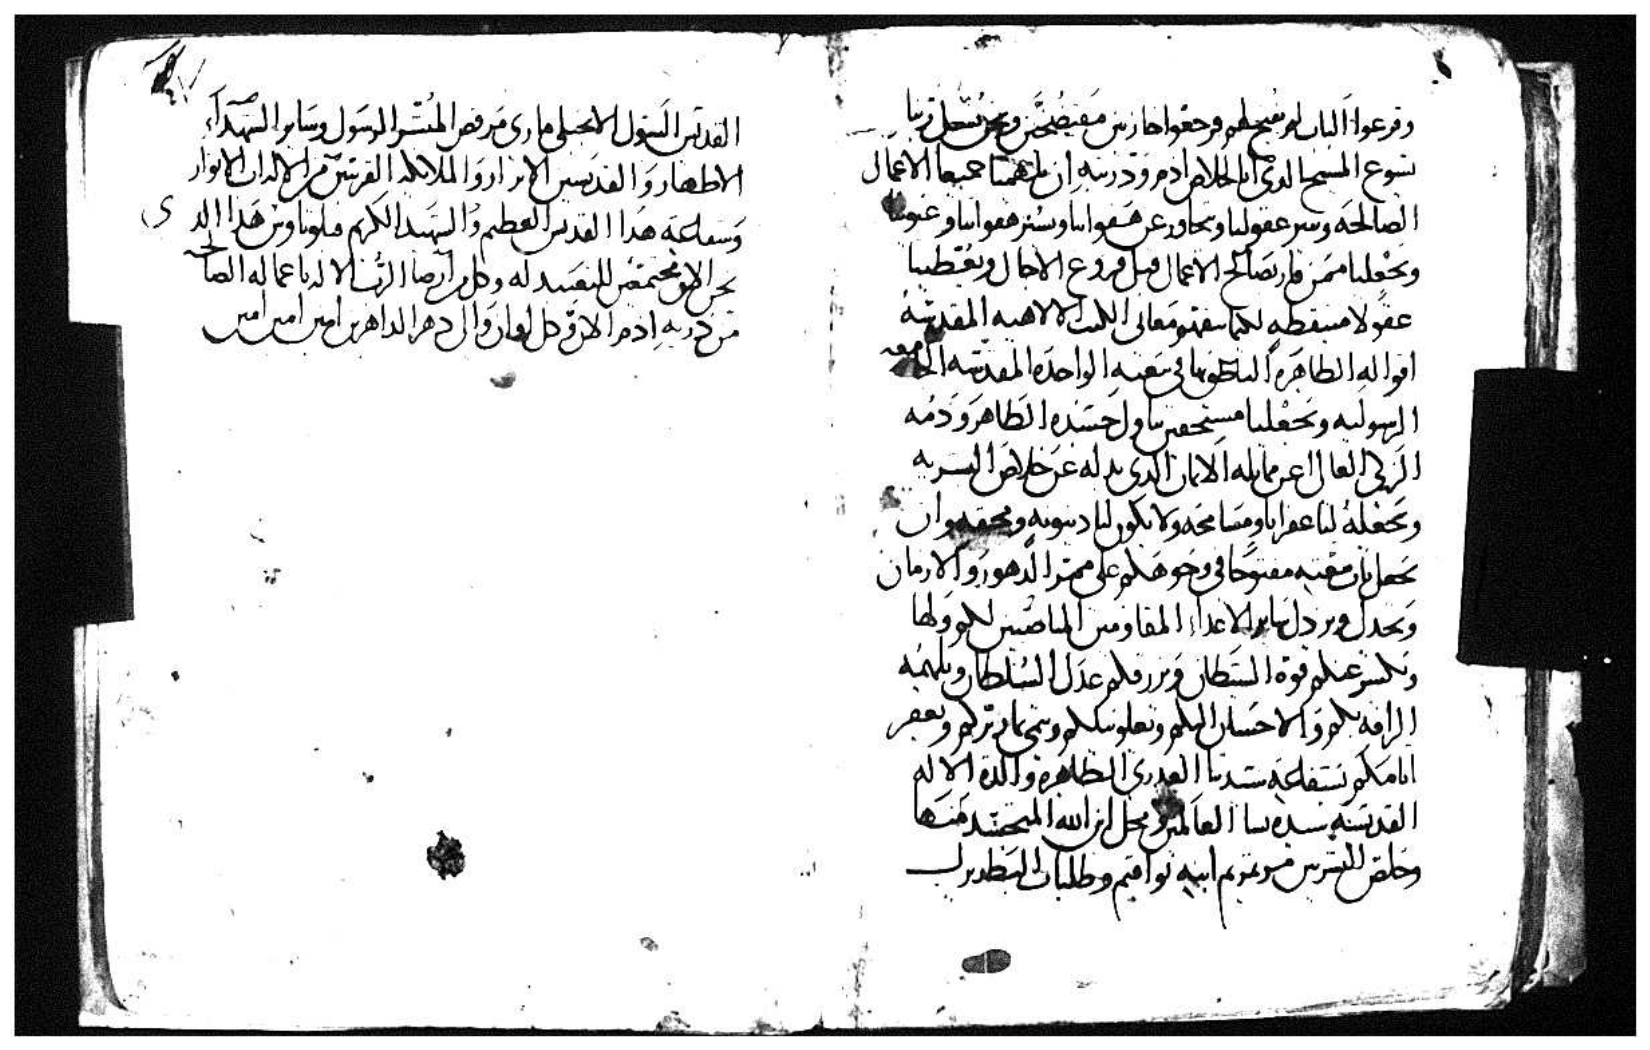 وقرعوا الباب لم يفتح لهم فرجعوا خازيين مفتضحين ونحن نسل ربنا
يسوع المسيح الدى اتا لخلاص ادم ودريته ان يلهمنا جميعا الاعمال
الصالحه وينير عقولنا ويتجاوز عن هفواتنا ويستر هفواتنا وعيوبنا
ويجعلنا ممن فاز بصالح الاعمال قبل فروغ الاجال ويعطينا
عقولا متيقظه لكيما نفهم معانى الكتب الالاهيه المقدسه
اقواله الطاهره الناطقون بها فى بيعته الواحده المقدسه الجامعه
الرسوليه ويجعلنا مستحقين تناول جسده الطاهر ودمه
الزكى الغالى عن مماثله الاثمان الدى بدله عن خلاص البشريه
ويجعله لنا غفرانا ومسامحه ولا يكون لنا دينونه ومحقه وان
يجعل باب بيعته مفتوحا فى وجوهكم على ممر الدهور والازمان
ويخدل ويردل ساير الاعداء المقاومين المناصبين لكم ولها
ويكسر عنكم قوة الشيطان ويرزقكم عدل السلطان ويلهمه
الرافه بكم والاحسان اليكم ويعلو شانكم ويغفر
اتامكم بشفاعة ستنا العدرى الطاهره والدة الاله
القديسه سيده نسا العالمين ومحل ابن الله المتجسد منها
وخلص البشريين مرتمريم ابنه يواقيم وطلبات البطريرك
القديس البتول الانجيلى مارى مرقص المبشر الرسول وساير الشهداء
الاطهار والقديسين الابرار والملايكه المقربين الانوار
وشفاعة هدا القديس العظيم والشهيد الكريم فلوباوس هدا الدى
نحن اليوم مجتمعين لنعيد له وكل من ارضا الرب الاله باعماله الصالحه
من دريه ادم الان وكل اوان والى دهر الداهرين امين امين امين